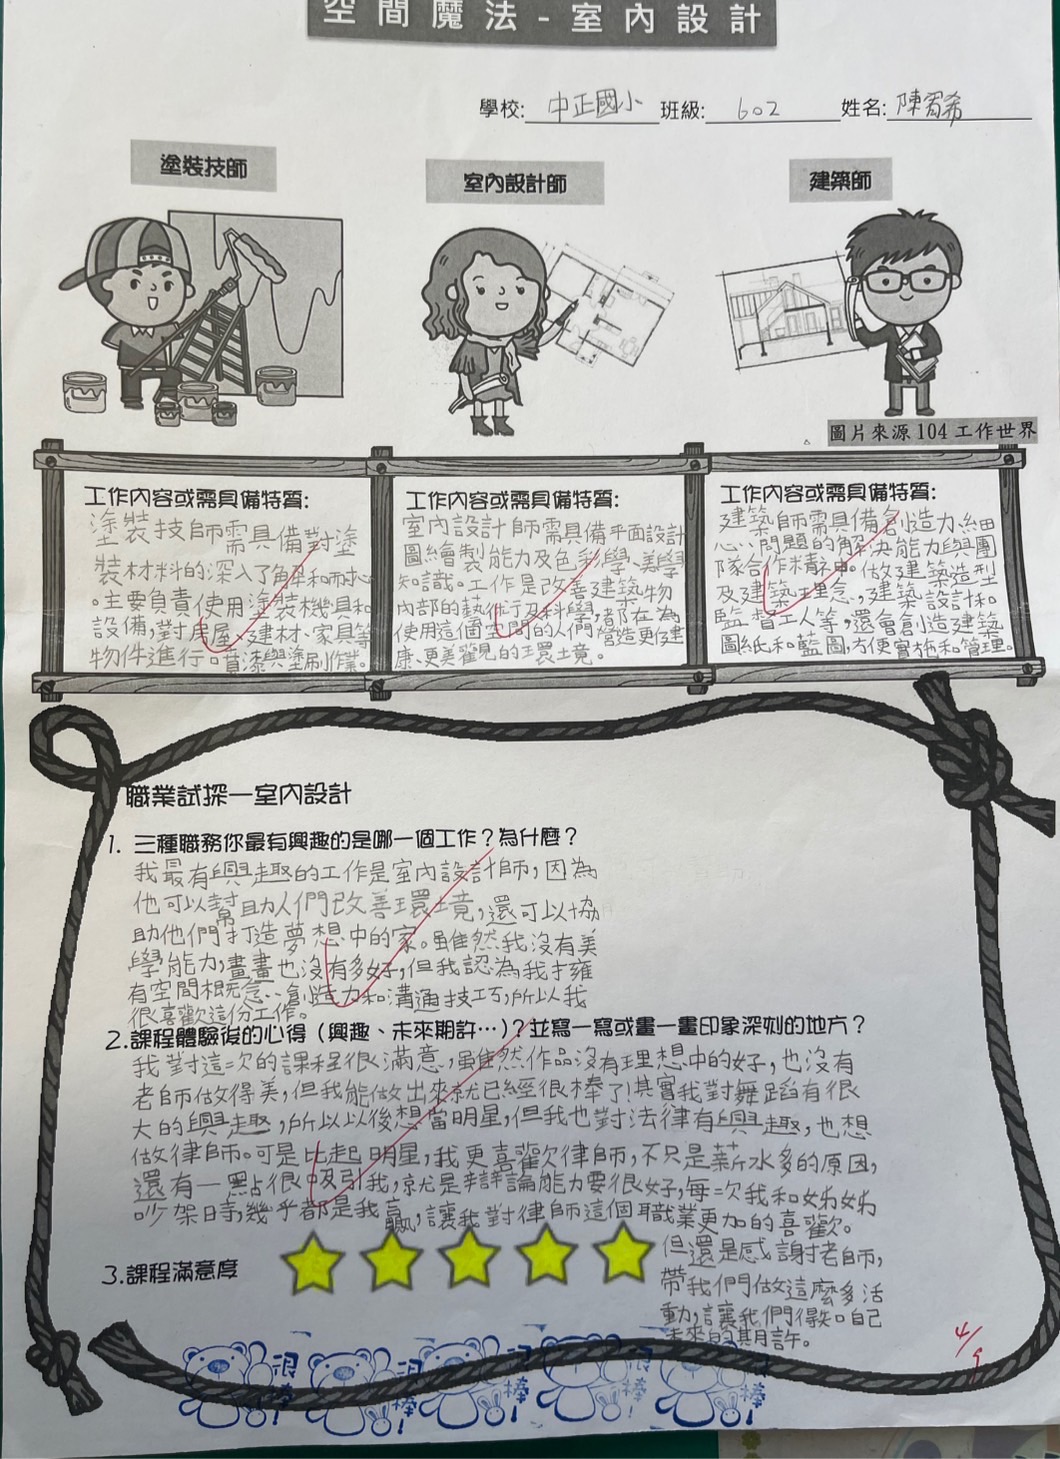 空間魔法-室內設計
學校: 中正國小 班級: 602 姓名: 陳宥希
塗裝技師
室內設計師
建築師
圖片來源 104 工作世界
工作內容或需具備特質:
塗裝技師需具備對塗
裝材料的深入了解和耐心
。主要負責使用塗裝機具和
設備,對房屋、建材、家具等
物件進行噴漆與塗刷作業。
工作內容或需具備特質:
室內設計師需具備平面設計
圖繪製能力及色彩學、美學
知識。工作是改善建築物
內部的藝術及科學,都在為
使用這個空間的人們營造更健
康、更美觀的環境。
工作內容或需具備特質:
建築師需具備創造力、細
心、問題的解決能力與團
隊合作精神。做建築造型
及建築理念,建築設計和
監督工人等,還會創造建築
圖紙和藍圖,方便實施和管理。
職業試探—室內設計
1. 三種職務你最有興趣的是哪一個工作?為什麼?
我最有興趣的工作是室內設計師,因為
他可以幫助人們改善環境,還可以協
助他們打造夢想中的家。雖然我沒有美
學能力,畫畫也沒有多好,但我認為我才擁
有空間概念、創造力和溝通技巧,所以我
很喜歡這份工作。
2.課程體驗後的心得(興趣、未來期許…)?並寫一寫或畫一畫印象深刻的地方?
我對這次的課程很滿意,雖然作品沒有理想中的好,也沒有
老師做得美,但我能做出來就已經很棒了!其實我對舞蹈有很
大的興趣,所以以後想當明星,但我也對法律有興趣,也想
做律師。可是比起明星,我更喜歡律師,不只是薪水多的原因,
還有一點很吸引我,就是辯論能力要很好,每次我和姊姊
吵架時,幾乎都是我贏,讓我對律師這個職業更加的喜歡。
但還是感謝老師,
帶我們做這麼多活
動,讓我們得知自己
未來的期許。
3.課程滿意度
很棒!
很棒!
很棒!
很棒!
很棒!